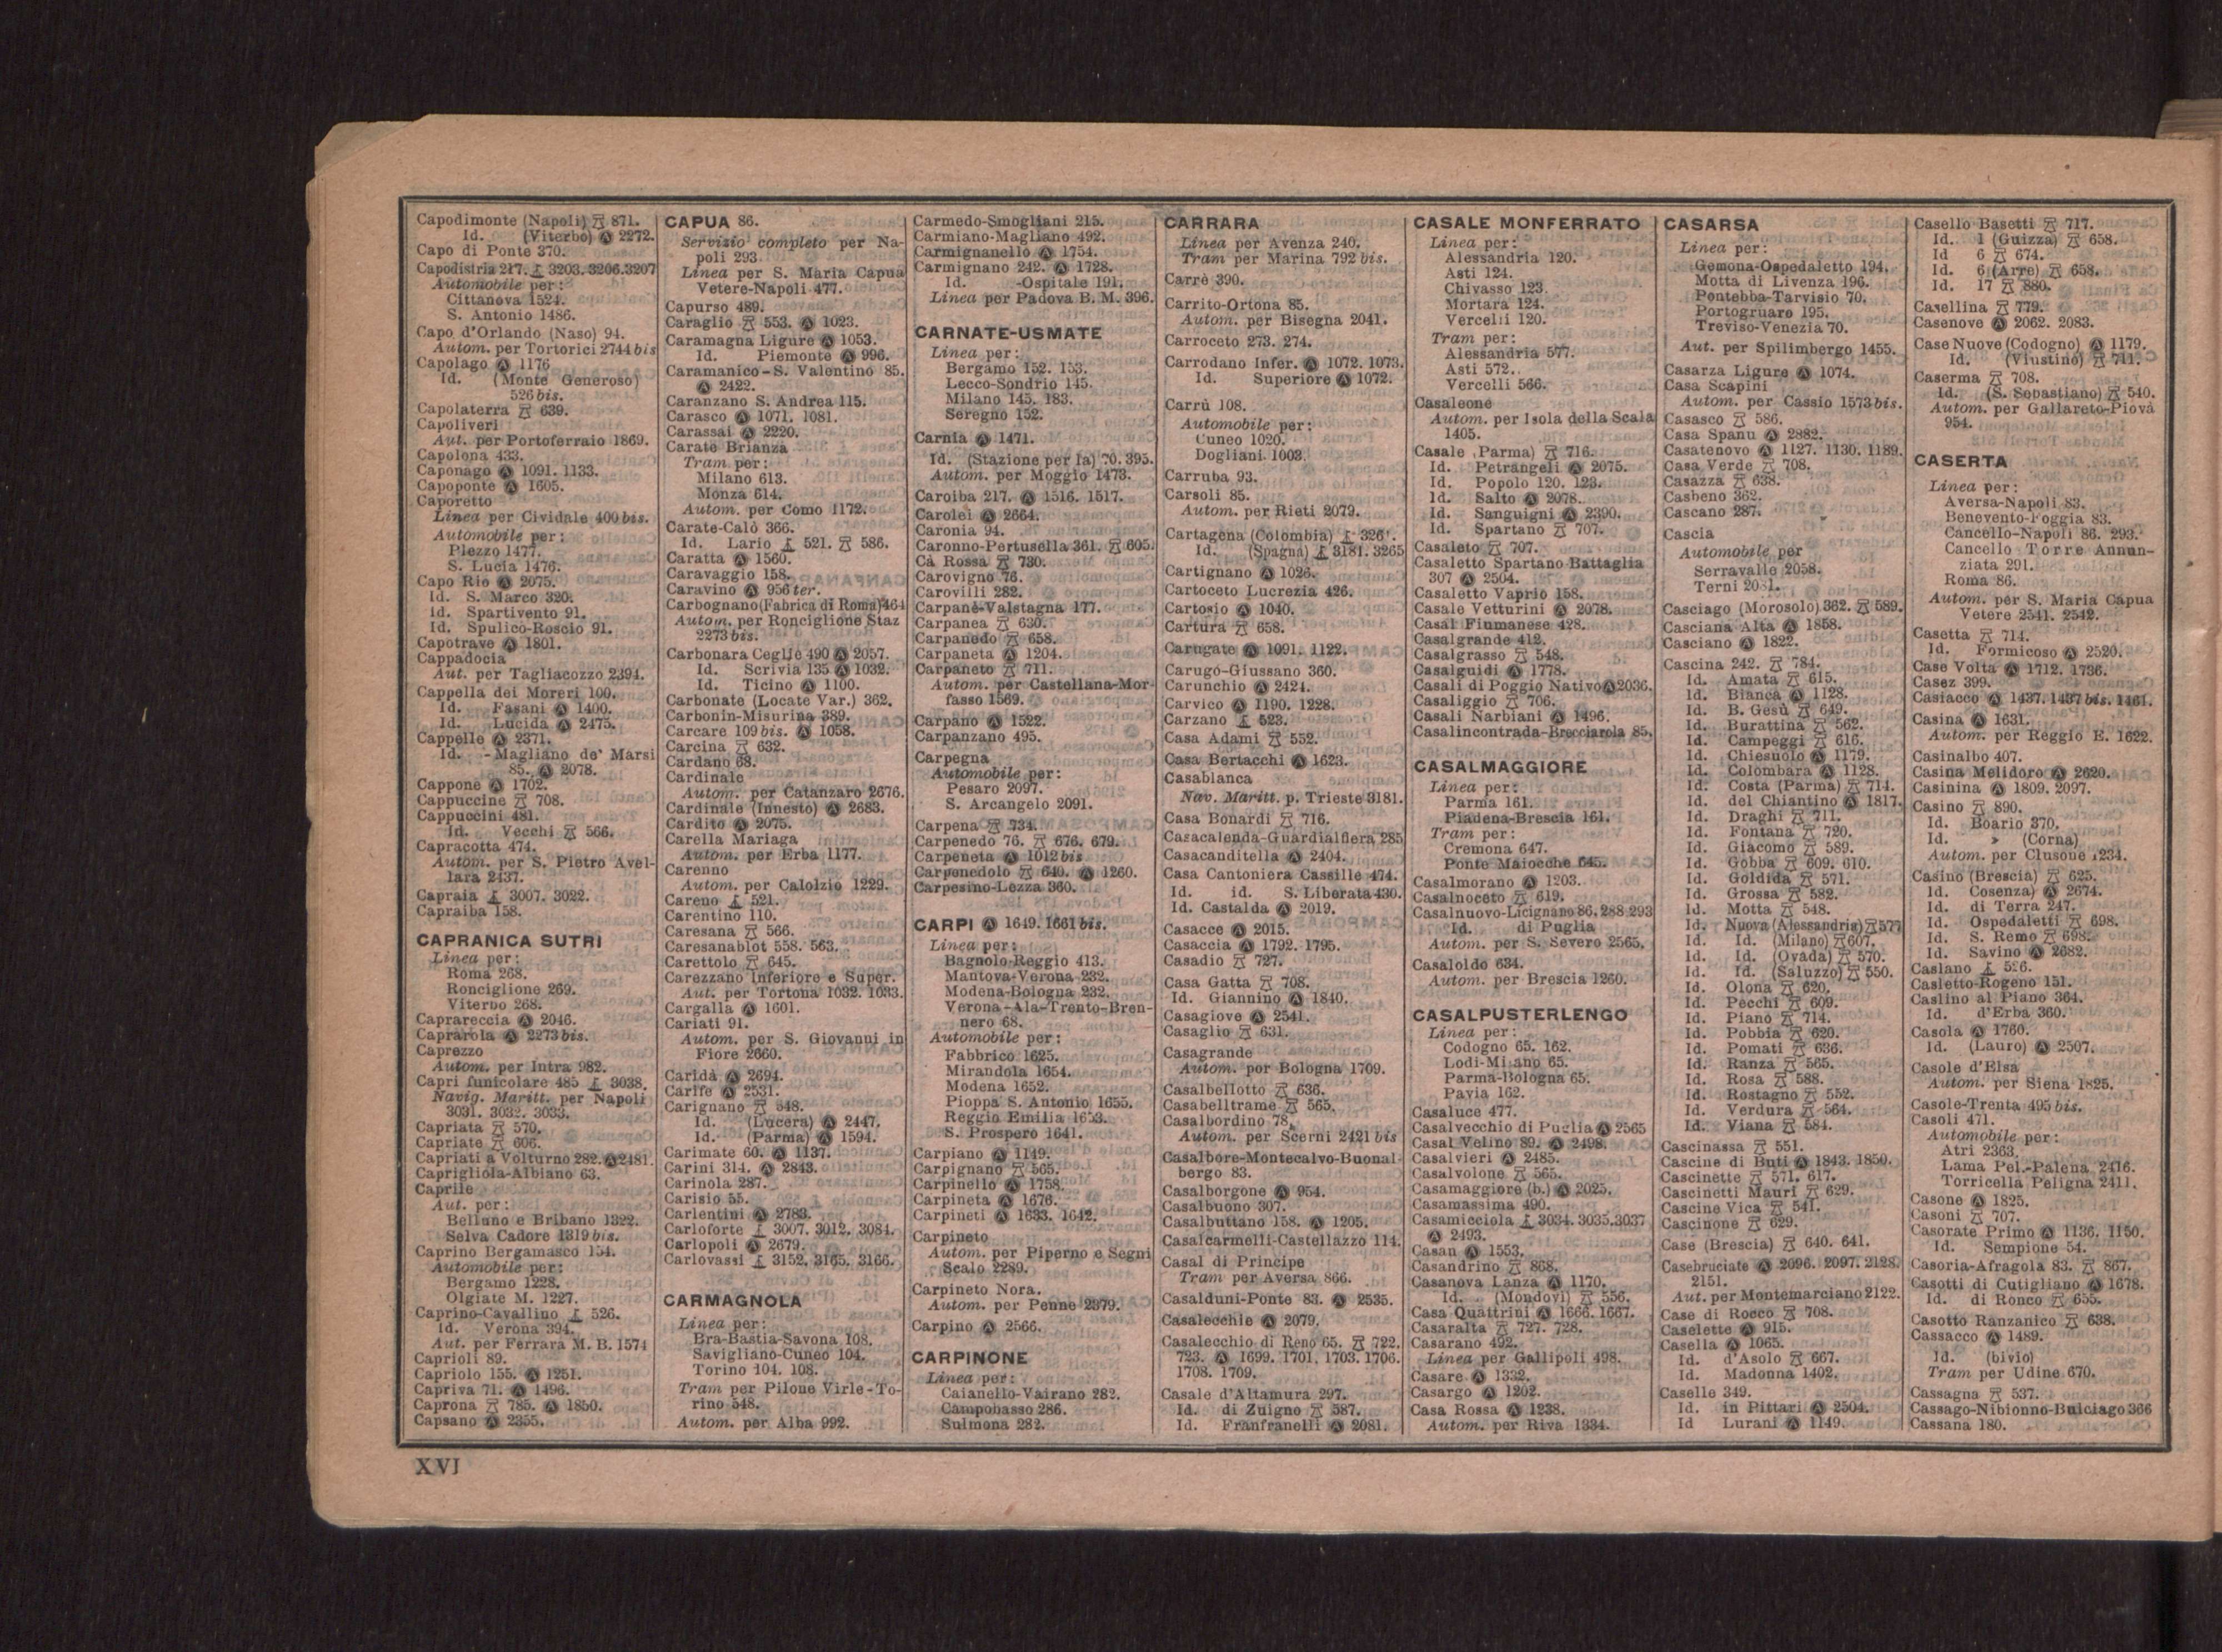 Capodimonte (Napoli) 871.
Id. (Viterbo) Ⓐ 2272.
Capo di Ponte 370.
Capodistria 217. 3203. 3206. 3207
Automobile per:
Cittanova 1524.
S. Antonio 1486.
Capo d'Orlando (Naso) 94.
Autom. per Tortorici 2744 bis
Capolago Ⓐ 1176
Id. (Monte Generoso)
526 bis.
Capolaterra 639.
Capoliveri
Aut. per Portoferraio 1869.
Capolona 433.
Caponago Ⓐ 1091. 1133.
Capoponte Ⓐ 1605.
Caporetto
Linea per Cividale 400 bis.
Automobile per:
Plezzo 1477.
S. Lucia 1476.
Capo Rio Ⓐ 2075.
Id. S. Marco 320.
Id. Spartivento 91.
Id. Spulico-Roscio 91.
Capotrave Ⓐ 1801.
Cappadocia
Aut. per Tagliacozzo 2394.
Cappella dei Moreri 100.
Id. Fasani Ⓐ 1400.
Id. Lucida Ⓐ 2475.
Cappelle Ⓐ 2371.
Id. - Magliano de' Marsi
85. Ⓐ 2078.
Cappone Ⓐ 1702.
Cappuccine 708.
Cappuccini 481.
Id. Vecchi 566.
Capracotta 474.
Autom. per S. Pietro Avel-
lara 2437.
Capraia 3007. 3022.
Capralba 158.
CAPRANICA SUTRI
Linea per:
Roma 268.
Ronciglione 269.
Viterbo 268.
Caprareccia Ⓐ 2046.
Caprarola Ⓐ 2273 bis.
Caprezzo
Autom. per Intra 982.
Capri funicolare 485 3038.
Navig. Maritt. per Napoli
3031. 3032. 3033.
Capriata 570.
Capriate 606.
Capriati a Volturno 282. Ⓐ 2481.
Caprigliola-Albiano 63.
Caprile
Aut. per:
Belluno e Bribano 1322.
Selva Cadore 1319 bis.
Caprino Bergamasco 154.
Automobile per:
Bergamo 1228.
Olgiate M. 1227.
Caprino-Cavallino 526.
Id. Verona 394.
Aut. per Ferrara M. B. 1574
Caprioli 89.
Capriolo 155. Ⓐ 1251.
Capriva 71. Ⓐ 1496.
Caprona 785. Ⓐ 1850.
Capsano Ⓐ 2355.
CAPUA 86.
Servizio completo per Na-
poli 293
Linea per S. Maria Capua
Vetere-Napoli 477.
Capurso 489.
Caraglio 553. Ⓐ 1023.
Caramagna Ligure Ⓐ 1053.
Id. Piemonte Ⓐ 996.
Caramanico - S. Valentino 85.
Ⓐ 2422.
Caranzano S. Andrea 115.
Carasco Ⓐ 1071. 1081.
Carassai Ⓐ 2220.
Carate Brianza
Tram per:
Milano 613.
Monza 614.
Autom. per Como 1172.
Carate-Calò 366.
Id. Lario 521. 586.
Caratta Ⓐ 1560.
Caravaggio 158.
Caravino Ⓐ 956 ter.
Carbognano (Fabrica di Roma) 464
Autom. per Ronciglione Staz
2273 bis.
Carbonara Ceglie 490 Ⓐ 2057.
Id. Scrivia 135 Ⓐ 1032.
Id. Ticino Ⓐ 1100.
Carbonate (Locate Var.) 362.
Carbonin-Misurina 389.
Carcare 109 bis. Ⓐ 1058.
Carcina 632.
Cardano 68.
Cardinale
Autom. per Catanzaro 2676.
Cardinale (Innesto) Ⓐ 2683.
Cardito Ⓐ 2075.
Carella Mariaga
Autom. per Erba 1177.
Carenno
Autom. per Calolzio 1229.
Careno 521.
Carentino 110.
Caresana 566.
Caresanablot 558. 563.
Carettolo 645.
Carezzano Inferiore e Super.
Aut. per Tortona 1032. 1033.
Cargalla Ⓐ 1601.
Cariati 91.
Autom. per S. Giovanni in
Fiore 2660.
Caridà Ⓐ 2694.
Carife Ⓐ 2531.
Carignano 548.
Id. (Lucera) Ⓐ 2447.
Id. (Parma) Ⓐ 1594.
Carimate 60. Ⓐ 1137.
Carini 314. Ⓐ 2843.
Carinola 287.
Carisio 55.
Carlentini Ⓐ 2783.
Carloforte 3007. 3012. 3084.
Carlopoli Ⓐ 2679.
Carlovassi 3152. 3165. 3166.
CARMAGNOLA
Linea per:
Bra-Bastia-Savona 108.
Savigliano-Cuneo 104.
Torino 104. 108.
Tram per Piloue Virle-To-
rino 548.
Autom. per Alba 992.
Carmedo-Smogliani 215.
Carmiano-Magliano 492.
Carmignanello Ⓐ 1754.
Carmignano 242. Ⓐ 1728.
Id. -Ospitale 191.
Linea per Padova B. M. 396.
CARNATE-USMATE
Linea per:
Bergamo 152. 153.
Lecco-Sondrio 145.
Milano 145. 183.
Seregno 152.
Carnia Ⓐ 1471.
Id. (Stazione per la) 70. 395.
Autom. per Moggio 1473.
Caroiba 217. Ⓐ 1516. 1517.
Carolei Ⓐ 2664.
Caronia 94.
Caronno-Pertusella 361. 605.
Cà Rossa 730.
Carovigno 76.
Carovilli 282.
Carpanè-Valstagna 177.
Carpanea 630.
Carpanedo 658.
Carpaneta Ⓐ 1204.
Carpaneto 711.
Autom. per Castellana-Mor-
fasso 1569.
Carpano Ⓐ 1522.
Carpanzano 495.
Carpegna
Automobile per:
Pesaro 2097.
S. Arcangelo 2091.
Carpena 734.
Carpenedo 76. 676. 679.
Carpeneta Ⓐ 1012 bis
Carpenedolo 640. Ⓐ 1260.
Carpesino-Lezza 360.
CARPI Ⓐ 1649. 1661 bis.
Linea per:
Bagnolo-Reggio 413.
Mantova-Verona 232.
Modena-Bologna 232.
Verona-Ala-Trento-Bren-
nero 68.
Automobile per:
Fabbrico 1625.
Mirandola 1654.
Modena 1652.
Pioppa S. Antonio 1655.
Reggio Emilia 1653.
S. Prospero 1641.
Carpiano Ⓐ 1149.
Carpignano 565.
Carpinello Ⓐ 1758.
Carpineta Ⓐ 1676.
Carpineti Ⓐ 1633. 1642.
Carpineto
Autom. per Piperno e Segni
Scalo 2289.
Carpineto Nora.
Autom. per Penne 2379.
Carpino Ⓐ 2566.
CARPINONE
Linea per:
Caianello-Vairano 282.
Campobasso 286.
Sulmona 282.
CARRARA
Linea per Avenza 240.
Tram per Marina 792 bis.
Carrè 390.
Carrito-Ortona 85.
Autom. per Bisegna 2041.
Carroceto 273. 274.
Carrodano Infer. Ⓐ 1072. 1073.
Id. Superiore Ⓐ 1072.
Carrù 108.
Automobile per:
Cuneo 1020.
Dogliani 1003.
Carruba 93.
Carsoli 85.
Autom. per Rieti 2079.
Cartagena (Colombia)
Id. (Spagna) 3181. 3265
Cartignano Ⓐ 1026.
Cartoceto Lucrezia 426.
Cartosio Ⓐ 1040.
Cartura 658.
Carugate Ⓐ 1091. 1122.
Carugo-Giussano 360.
Carunchio Ⓐ 2424.
Carvico Ⓐ 1190. 1228.
Carzano 523.
Casa Adami 552.
Casa Bertacchi Ⓐ 1623.
Casablanca
Nav. Maritt. p. Trieste 3181.
Casa Bonardi 716.
Casacalenda-Guardialfiera 285
Casacanditella Ⓐ 2404.
Casa Cantoniera Cassille 474.
Id. id. S. Liberata 430.
Id. Castalda Ⓐ 2019.
Casacce Ⓐ 2015.
Casaccia Ⓐ 1792. 1795.
Casadio 727.
Casa Gatta 708.
Id. Giannino Ⓐ 1840.
Casagiove Ⓐ 2541.
Casaglio 631.
Casagrande
Autom. por Bologna 1709.
Casalbellotto 636.
Casabelltrame 565.
Casalbordino 78.
Autom. per Scerni 2421 bis
Casalbore-Montecalvo-Buonal-
bergo 83.
Casalborgone Ⓐ 954.
Casalbuono 307.
Casalbuttano 158. Ⓐ 1205.
Casalcarmelli-Castellazzo 114.
Casal di Principe
Tram per Aversa 866.
Casalduni-Ponte 83. Ⓐ 2535.
Casalecchie Ⓐ 2079.
Casalecchio di Reno 65. 722.
723. Ⓐ 1699. 1701. 1703. 1706.
1708. 1709.
Casale d'Altamura 297.
Id. di Zuigno 587.
Id. Franfranelli Ⓐ 2081.
CASALE MONFERRATO
Linea per:
Alessandria 120.
Asti 124.
Chivasso 123
Mortara 124.
Vercelli 120.
Tram per:
Alessandria 577.
Asti 572.
Vercelli 566.
Casaleone
Autom. per Isola della Scala
1405.
Casale (Parma) 716.
Id. Petrangeli Ⓐ 2075.
Id. Popolo 120. 123.
Id. Salto Ⓐ 2078.
Id. Sanguigni Ⓐ 2390.
Id. Spartano 707.
Casaleto 707.
Casaletto Spartano Battaglia
307 Ⓐ 2504.
Casaletto Vaprio 158.
Casale Vetturini Ⓐ 2078.
Casal Fiumanese 428.
Casalgrande 412.
Casalgrasso 548.
Casalguidi Ⓐ 1778.
Casali di Poggio Nativo Ⓐ 2036.
Casaliggio 706.
Casali Narbiani Ⓐ 1496.
Casalincontrada-Brecciarola 85.
CASALMAGGIORE
Linea per:
Parma 161.
Piadena-Brescia 161.
Tram per:
Cremona 647.
Ponte Maiocche 645.
Casalmorano Ⓐ 1203.
Casalnoceto 619.
Casalnuovo-Licignano 86. 288 293
Id. di Puglia
Autom. per S. Severo 2565.
Casaloldo 634.
Autom. per Brescia 1260.
CASALPUSTERLENGO
Linea per:
Codogno 65. 162.
Lodi-Milano 65.
Parma-Bologna 65.
Pavia 162.
Casaluce 477.
Casalvecchio di Puglia Ⓐ 2565
Casal Velino 89. Ⓐ 2498.
Casalvieri Ⓐ 2485.
Casalvolone 565.
Casamaggiore (b.) Ⓐ 2025.
Casamassima 490.
Casamicciola 3034. 3035. 3037
Ⓐ 2493.
Casan Ⓐ 1553.
Casandrino 868.
Casanova Lanza Ⓐ 1170.
Id. (Mondovì) 556.
Casa Quattrini Ⓐ 1666. 1667.
Casaralta 727. 728.
Casarano 492.
Linea per Gallipoli 498.
Casare Ⓐ 1332.
Casargo Ⓐ 1202.
Casa Rossa Ⓐ 1238.
Autom. per Riva 1334.
CASARSA
Linea per:
Gemona-Ospedaletto 194.
Motta di Livenza 196.
Pontebba-Tarvisio 70.
Portogruaro 195.
Treviso-Venezia 70.
Aut. per Spilimbergo 1455.
Casarza Ligure Ⓐ 1074.
Casa Scapini
Autom. per Cassio 1573 bis.
Casasco 586.
Casa Spanu Ⓐ 2882.
Casatenovo Ⓐ 1127. 1130. 1189.
Casa Verde 708.
Casazza 638.
Casbeno 362.
Cascano 287.
Cascia
Automobile per
Serravalle 2058.
Terni 2081.
Casciago (Morosolo) 362. 589.
Casciana Alta Ⓐ 1858.
Casciano Ⓐ 1822.
Cascina 242. 784.
Id. Amata 615.
Id. Bianca Ⓐ 1128.
Id. B. Gesù 649.
Id. Burattina 562.
Id. Campeggi 616.
Id. Chiesuolo Ⓐ 1179.
Id. Colombara Ⓐ 1128.
Id. Costa (Parma) 714.
Id. del Chiantino Ⓐ 1817.
Id. Draghi 711.
Id. Fontana 720.
Id. Giacomo 589.
Id. Gobba 609. 610.
Id. Goldida 571.
Id. Grossa 582.
Id. Motta 548.
Id. Nuova (Alessandria) 577
Id. Id. (Milano) 607.
Id. Id. (Ovada) 570.
Id. Id. (Saluzzo) 550.
Id. Olona 620.
Id. Pecchi 609.
Id. Piano 714.
Id. Pobbia 620.
Id. Pomati 636.
Id. Ranza 565.
Id. Rosa 588.
Id. Rostagno 552.
Id. Verdura 564.
Id. Viana 584.
Cascinassa 551.
Cascine di Buti Ⓐ 1843. 1850.
Cascinette 571. 617.
Cascinetti Mauri 629.
Cascine Vica 541.
Cascinone 629.
Case (Brescia) 640. 641.
Casebruciate Ⓐ 2096. 2097. 2128.
2151.
Aut. per Montemarciano 2122.
Case di Rocco 708.
Caselette Ⓐ 915.
Casella Ⓐ 1065.
Id. d'Asolo 667.
Id. Madonna 1402.
Caselle 349.
Id. in Pittari Ⓐ 2504.
Id Lurani Ⓐ 1149.
Casello Basetti 717.
Id. 1 (Guizza) 658.
Id 6 674.
Id. 6 (Arre) 658.
Id. 17 880.
Casellina 779.
Casenove Ⓐ 2062. 2083.
Case Nuove (Codogno) Ⓐ 1179.
Id. (Viustino) 711.
Caserma 708.
Id. (S. Sebastiano) 540.
Autom. per Gallareto-Piovà
954.
CASERTA
Linea per:
Aversa-Napoli 83.
Benevento-Foggia 83.
Cancello-Napoli 86. 293.
Cancello Torre Annun-
ziata 291.
Roma 86.
Autom. per S. Maria Capua
Vetere 2541. 2542.
Casetta 714.
Id. Formicoso Ⓐ 2520.
Case Volta Ⓐ 1712. 1736.
Casez 399.
Casiacco Ⓐ 1437. 1437 bis. 1461.
Casina Ⓐ 1631.
Autom. per Reggio E. 1622.
Casinalbo 407.
Casina Melidoro Ⓐ 2620.
Casinina Ⓐ 1809. 2097.
Casino 890.
Id. Boario 370.
Id. » (Corna)
Autom. per Clusone 1234.
Casino (Brescia) 625.
Id. Cosenza) Ⓐ 2674.
Id. di Terra 247.
Id. Ospedaletti 698.
Id. S. Remo 698.
Id. Savino Ⓐ 2682.
Caslano 526.
Casletto-Rogeno 151.
Caslino al Piano 364.
Id. d'Erba 360.
Casola Ⓐ 1760.
Id. (Lauro) Ⓐ 2507.
Casole d'Elsa
Autom. per Siena 1825.
Casole-Trenta 495 bis.
Casoli 471.
Automobile per:
Atri 2363
Lama Pel.-Palena 2416.
Torricella Peligna 2411.
Casone Ⓐ 1825.
Casoni 707.
Casorate Primo Ⓐ 1136. 1150.
Id. Sempione 54.
Casoria-Afragola 83. 867.
Casotti di Cutigliano Ⓐ 1678.
Id. di Ronco 655.
Casotto Ranzanico 638.
Cassacco Ⓐ 1489.
Id. (bivio)
Tram per Udine 670.
Cassagna 537.
Cassago-Nibionno-Bulciago 366
Cassana 180.
XVI